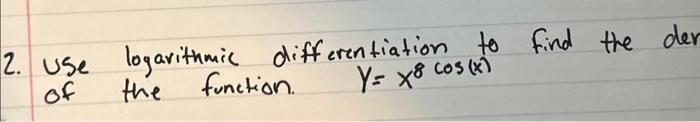 2. Use logarithmic differentiation to find the der
of the function. Y= x^8 cos(x)